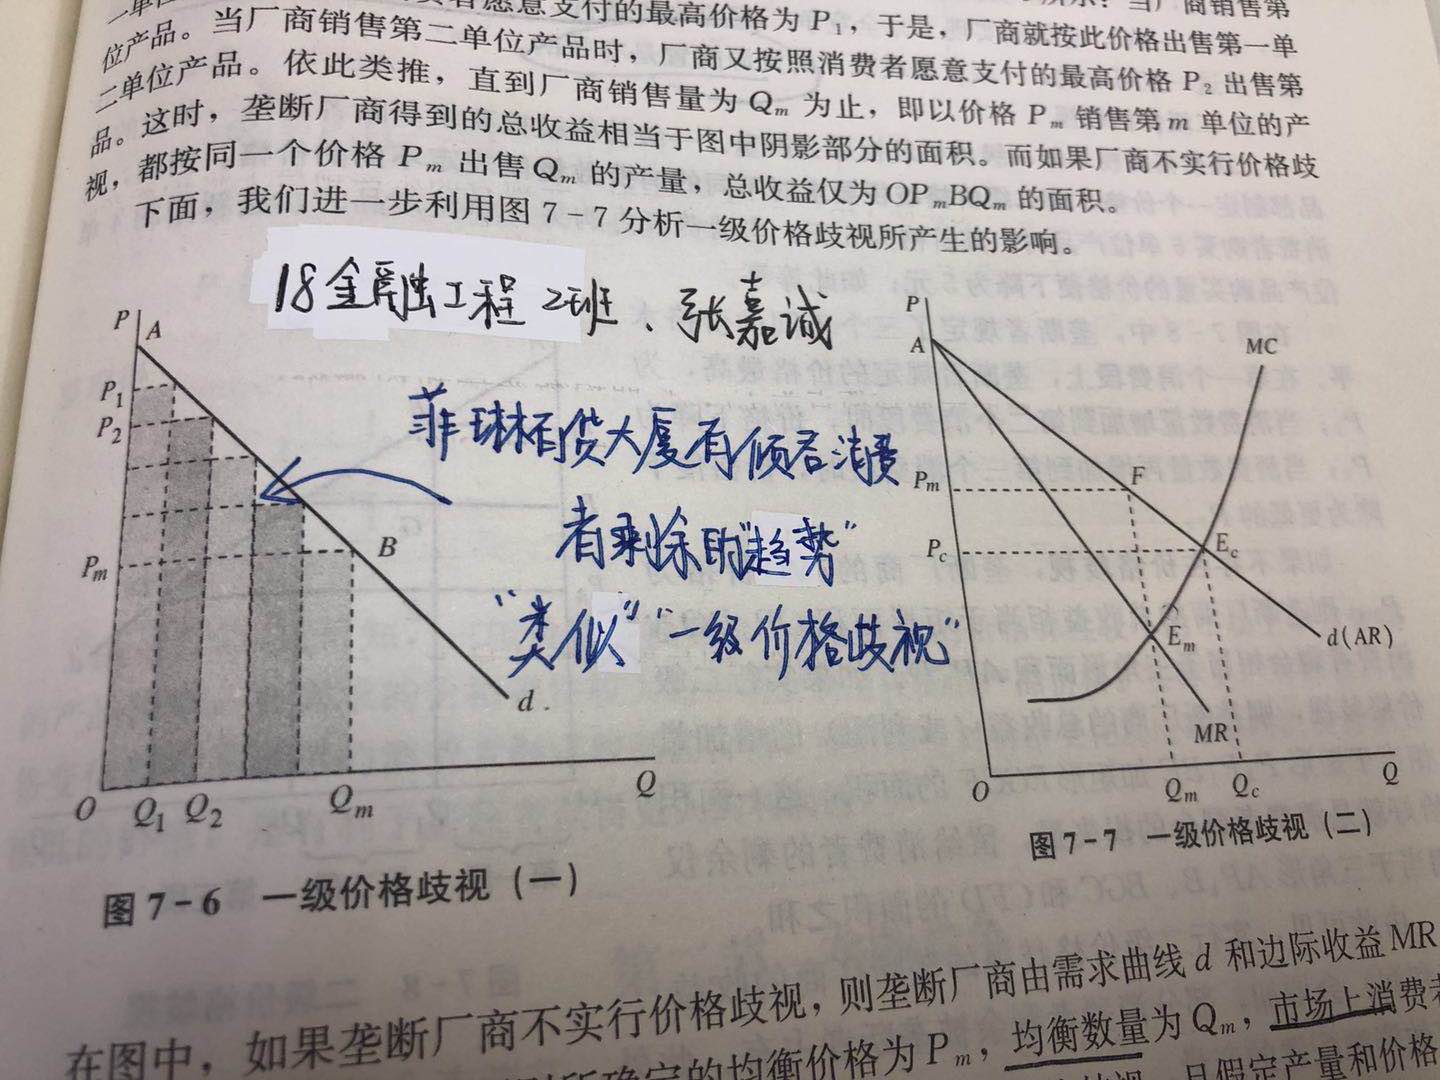 者愿意支付的最高价格为 P₁，于是，厂商就按此价格出售第一单
位产品。当厂商销售第二单位产品时，厂商又按照消费者愿意支付的最高价格 P₂ 出售第
二单位产品。依此类推，直到厂商销售量为 Qₘ 为止，即以价格 Pₘ 销售第 m 单位的产
品。这时，垄断厂商得到的总收益相当于图中阴影部分的面积。而如果厂商不实行价格歧
视，都按同一个价格 Pₘ 出售 Qₘ 的产量，总收益仅为 OPₘBQₘ 的面积。
下面，我们进一步利用图 7-7 分析一级价格歧视所产生的影响。
18金融工程 2班、张嘉诚
菲琳百货大厦有倾吞消费
者剩余的"趋势"
"类似""一级价格歧视"
P
A
P₁
P₂
Pₘ
B
d
O
Q₁
Q₂
Qₘ
Q
图 7-6 一级价格歧视（一）
P
A
MC
Pₘ
F
P꜀
E꜀
Eₘ
d(AR)
MR
O
Qₘ
Q꜀
Q
图 7-7 一级价格歧视（二）
在图中，如果垄断厂商不实行价格歧视，则垄断厂商由需求曲线 d 和边际收益 MR
所确定的均衡价格为 Pₘ，均衡数量为 Qₘ，市场上消费者
且假定产量和价格